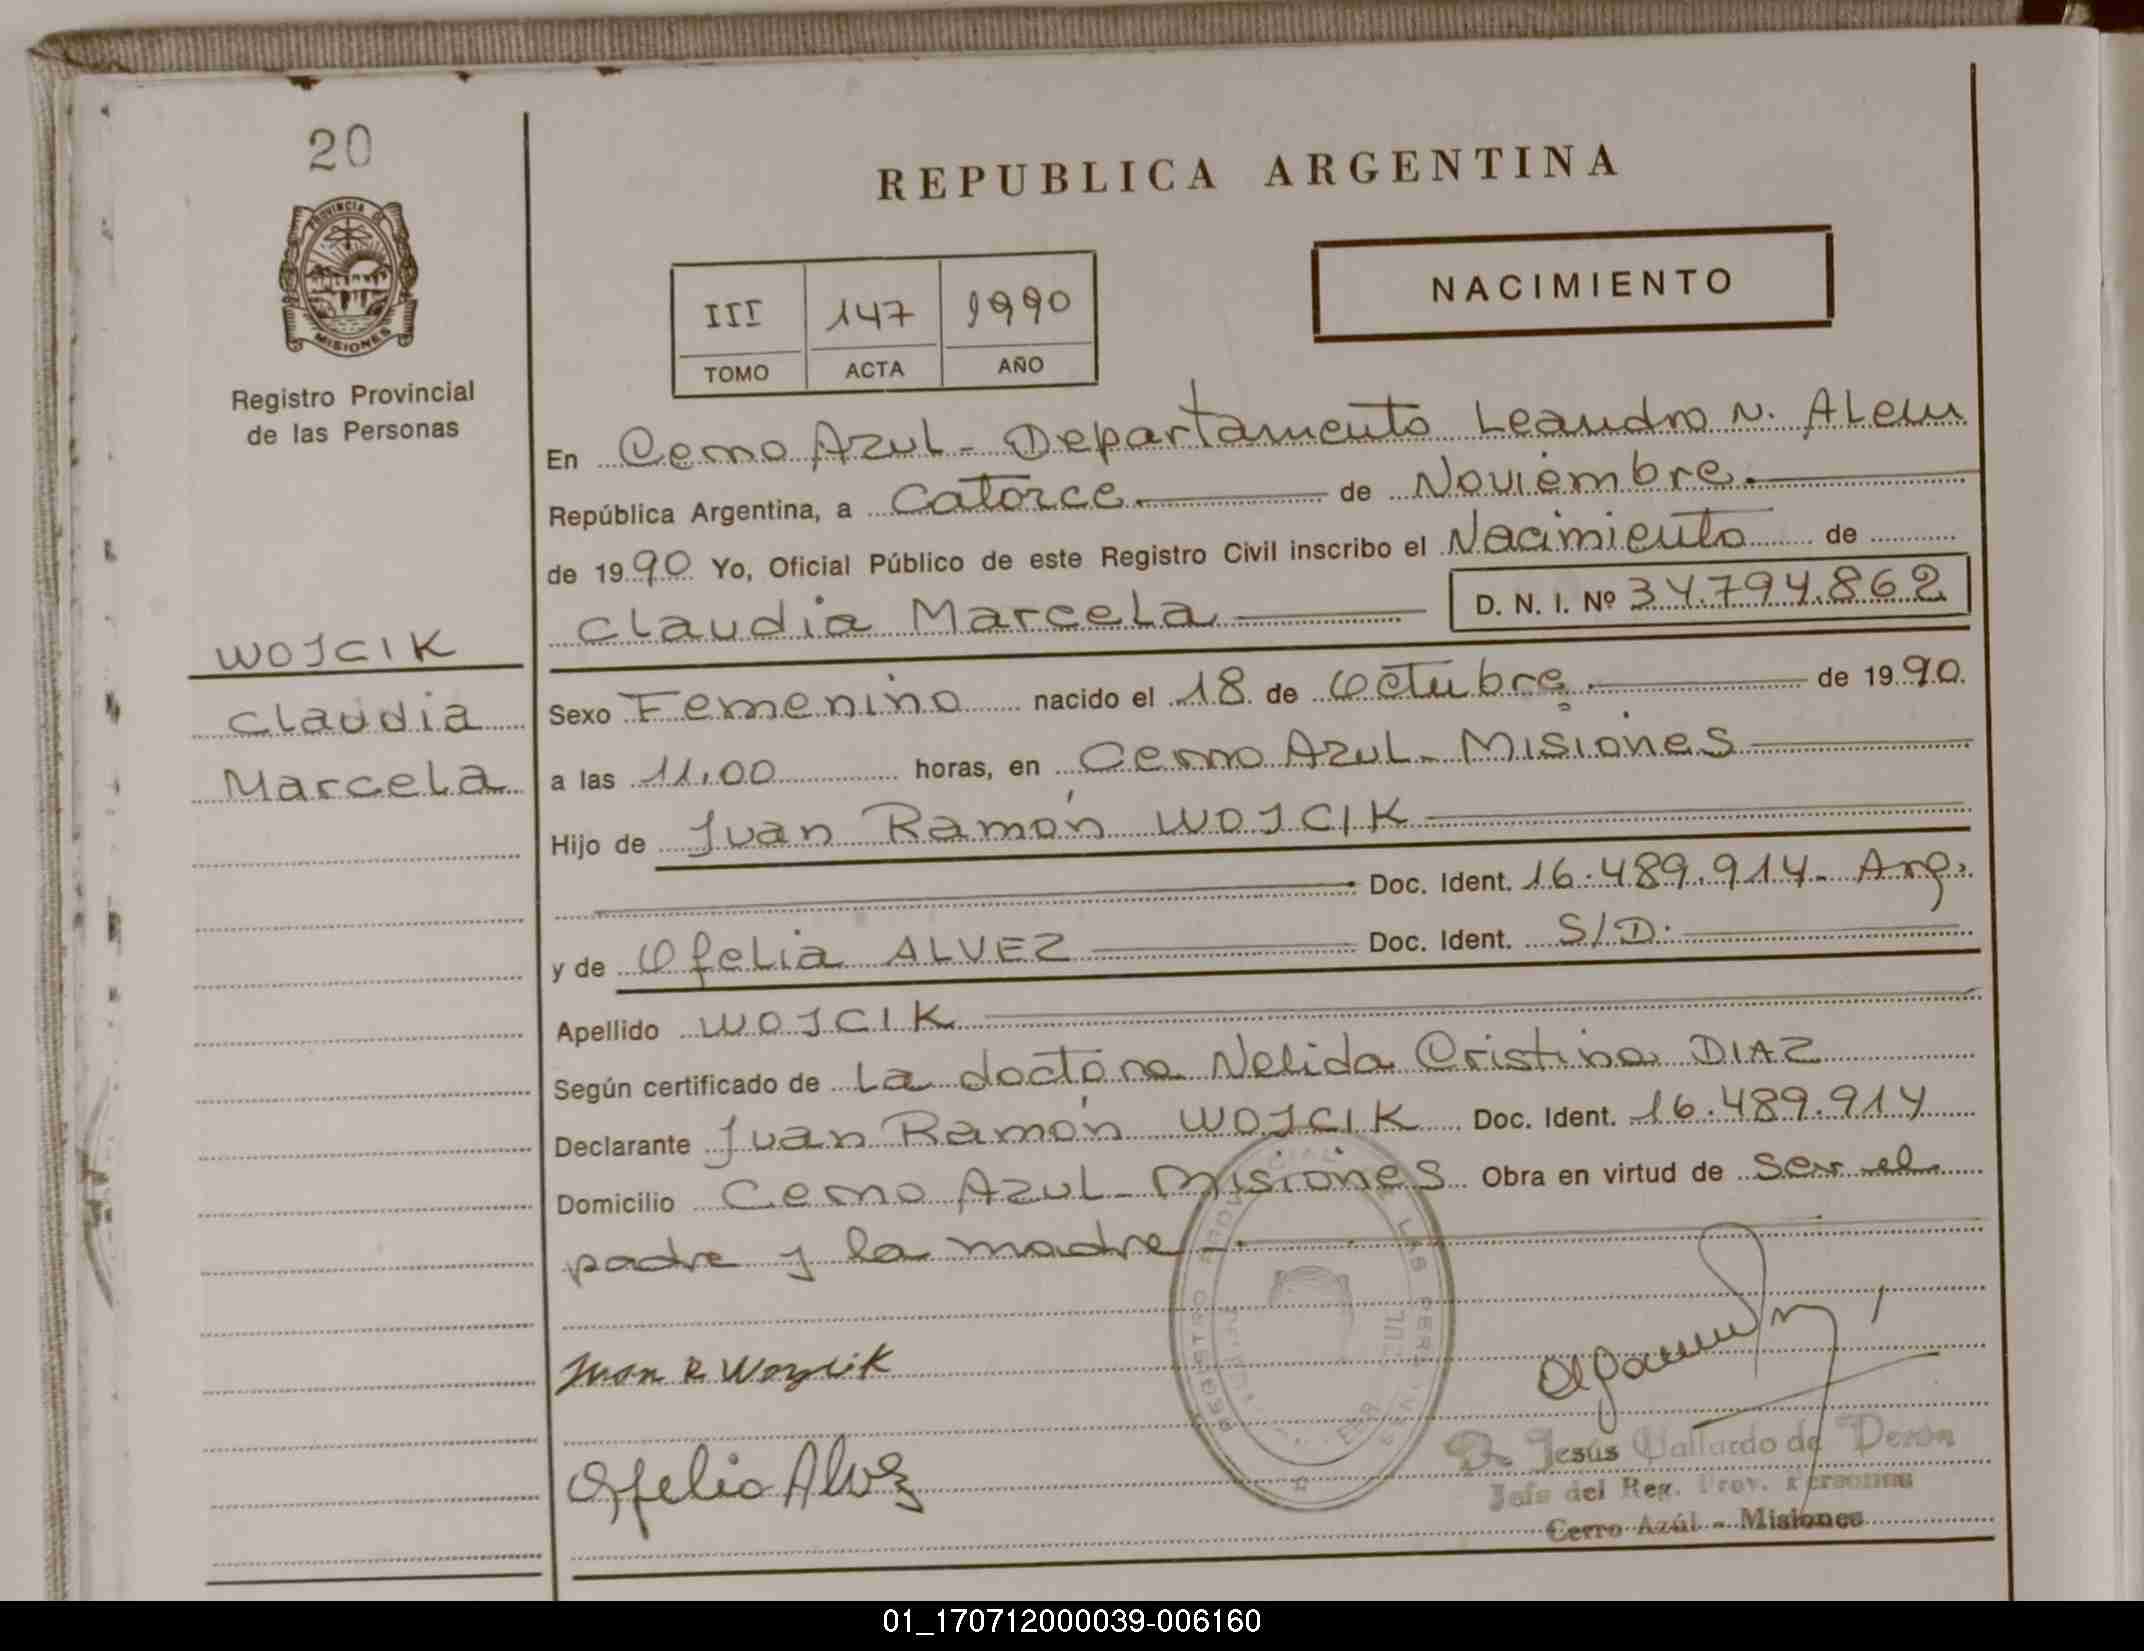 20
PROVINCIA DE
MISIONES
Registro Provincial
de las Personas
WOJCIK
Claudia
Marcela
REPUBLICA ARGENTINA
NACIMIENTO
III 147 1990
TOMO ACTA AÑO
En Cerro Azul - Departamento Leandro N. Alem
República Argentina, a Catorce. de Noviembre.
de 1990 Yo, Oficial Público de este Registro Civil inscribo el Nacimiento de
Claudia Marcela D. N. I. Nº 34.794.862
Sexo Femenino nacido el 18 de Octubre. de 1990.
a las 11,00 horas, en Cerro Azul - Misiones
Hijo de Juan Ramón WOJCIK
Doc. Ident. 16.489.914 - Arg.
y de Ofelia ALVEZ Doc. Ident. S/D.
Apellido WOJCIK
Según certificado de La doctora Nelida Cristina DIAZ
Declarante Juan Ramón WOJCIK Doc. Ident. 16.489.914
Domicilio Cerro Azul - Misiones Obra en virtud de ser el
padre y la madre -.
Juan R Woycik
Ofelia Alvez
Jesús Gallardo de
Jefe del Reg. Prov. Personas
Cerro Azúl - Misiones
01_170712000039-006160